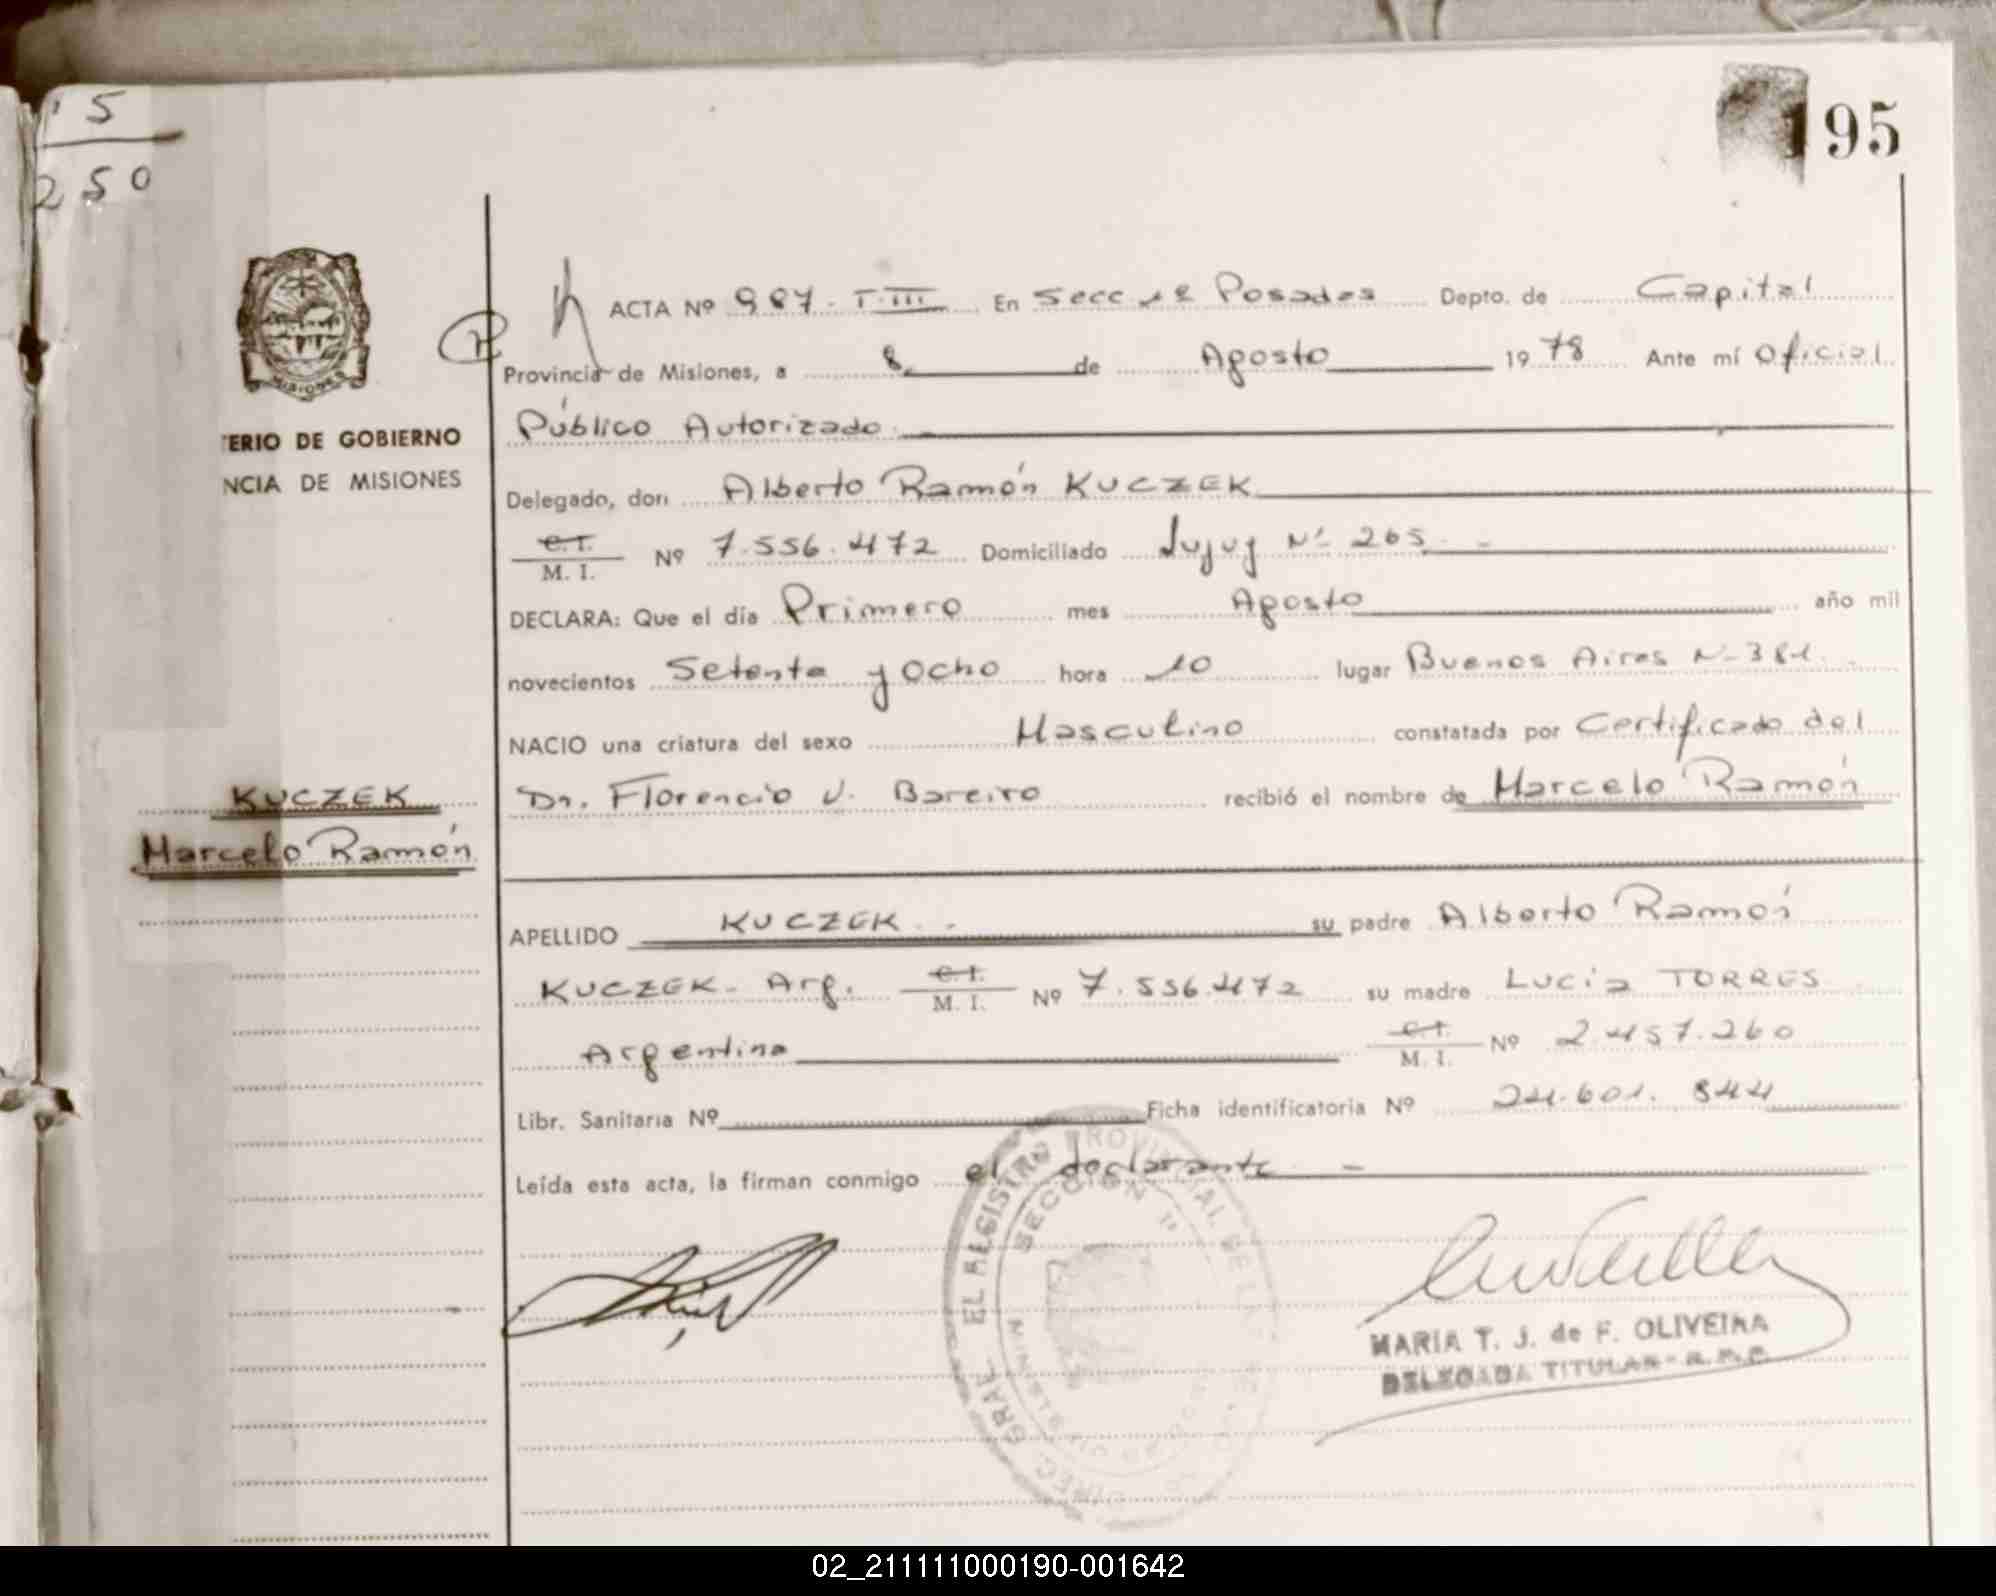 5
250
195
MISIONES
TERIO DE GOBIERNO
NCIA DE MISIONES
ACTA Nº 987- T-III En Secc 1ª Posadas Depto. de Capital
Provincia de Misiones, a 8 de Agosto 1978 Ante mí Oficial
Público Autorizado
Delegado, don Alberto Ramón KUCZEK
C.I. M. I. Nº 7.556.472 Domiciliado Jujuy Nº 265
DECLARA: Que el día Primero mes Agosto año mil
novecientos Setenta y Ocho hora 10 lugar Buenos Aires Nº 381
NACIO una criatura del sexo Masculino constatada por Certificado del
Dr. Florencio V. Bareiro recibió el nombre de Marcelo Ramón
KUCZEK
Marcelo Ramón
APELLIDO KUCZEK su padre Alberto Ramón
KUCZEK- Arg. C.I. M. I. Nº 7.556.472 su madre Lucía TORRES
Argentina C.I. M. I. Nº 2.457.260
Libr. Sanitaria Nº Ficha identificatoria Nº 24.601.844
Leída esta acta, la firman conmigo el declarante
DIREC. GRAL. EL REGISTRO PROVINCIAL DE LA
SECCION 1ª
MINISTE
MARIA T. J. de F. OLIVEIRA
DELEGADA TITULAR- R.P.P.
02_211111000190-001642